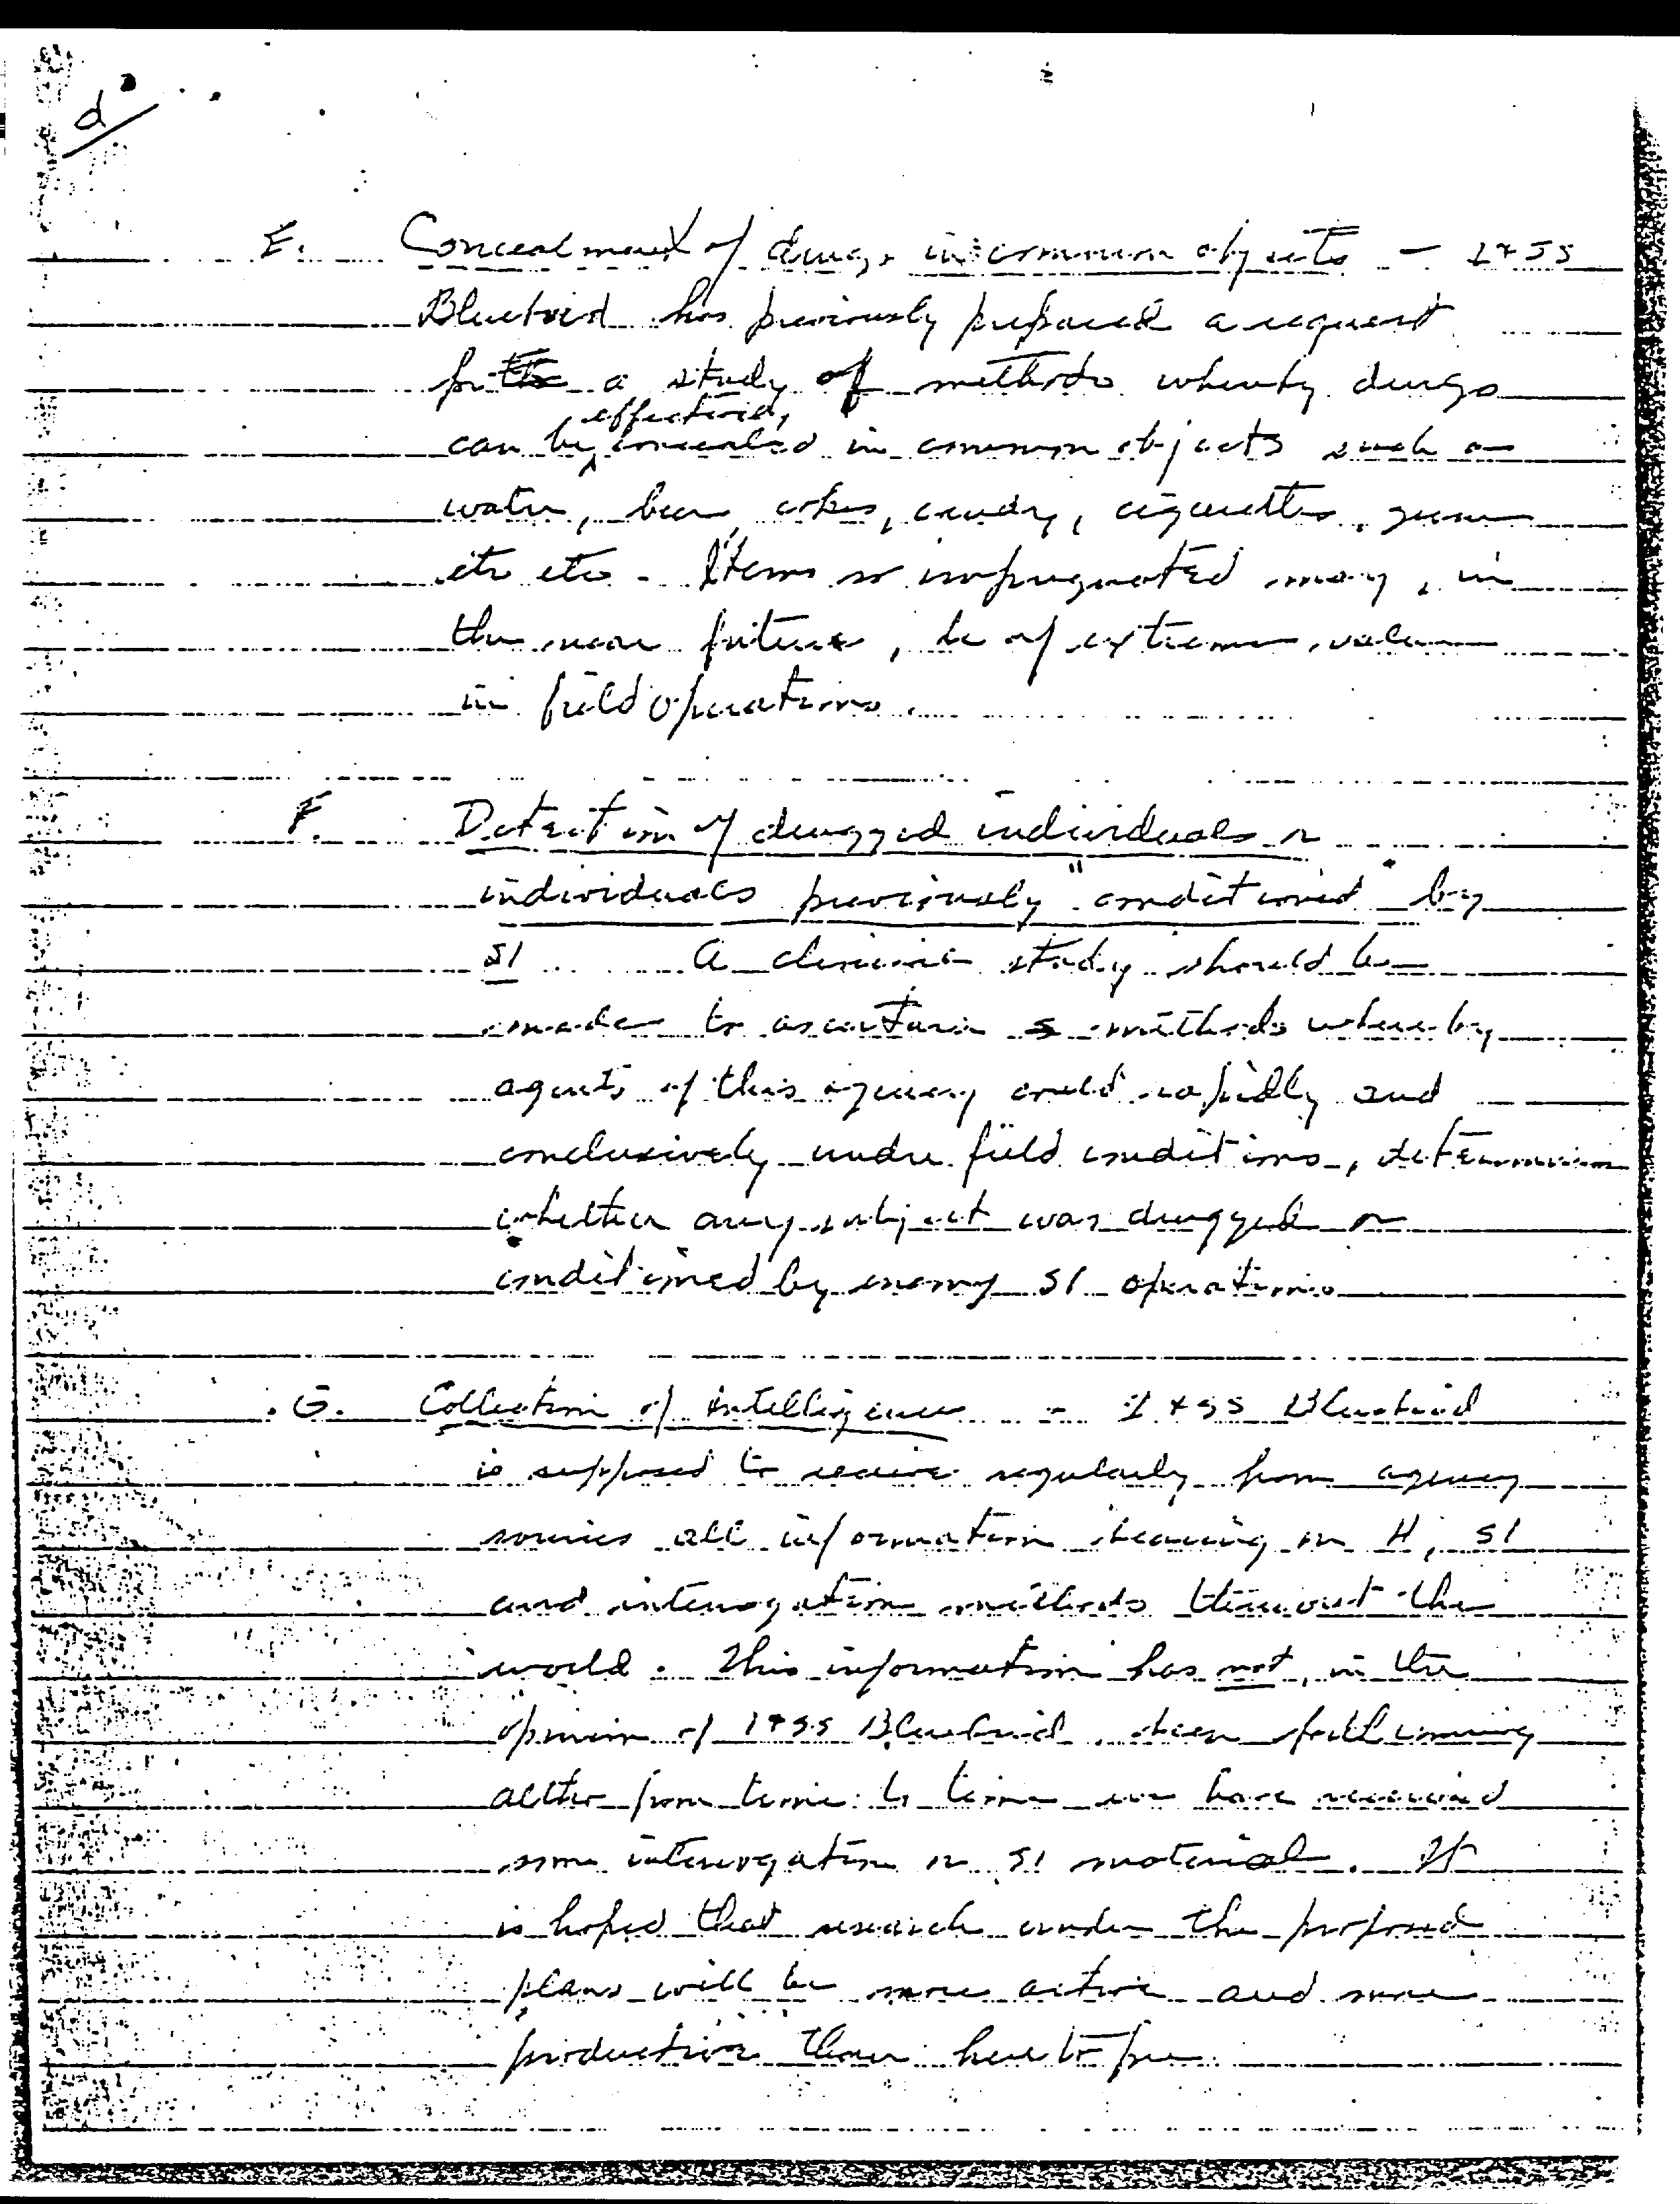 d
E. Concealment of drugs in common objects – I+SS
Bluebird has previously prepared a request
for the a study of methods whereby drugs
effectively
can be concealed in common objects such as
water, beer, cokes, candy, cigarettes, gum
etc etc - Items so impregnated may, in
the near future, be of extreme value
in field operations.
F. Detection of drugged individuals or
individuals previously "conditioned" by
SI A clinical study should be
made to ascertain s methods whereby
agents of this agency could rapidly and
conclusively under field conditions, determine
whether any subject was drugged or
conditioned by enemy SI operations
G. Collection of intelligence - I+SS Bluebird
is supposed to receive regularly from agency
sources all information bearing on H, SI
and interrogation methods thruout the
world. This information has not, in the
opinion of I+SS Bluebird, been forthcoming
altho from time to time we have received
some interrogation or SI material. It
is hoped that research under the proposed
plans will be more active and more
productive than heretofore